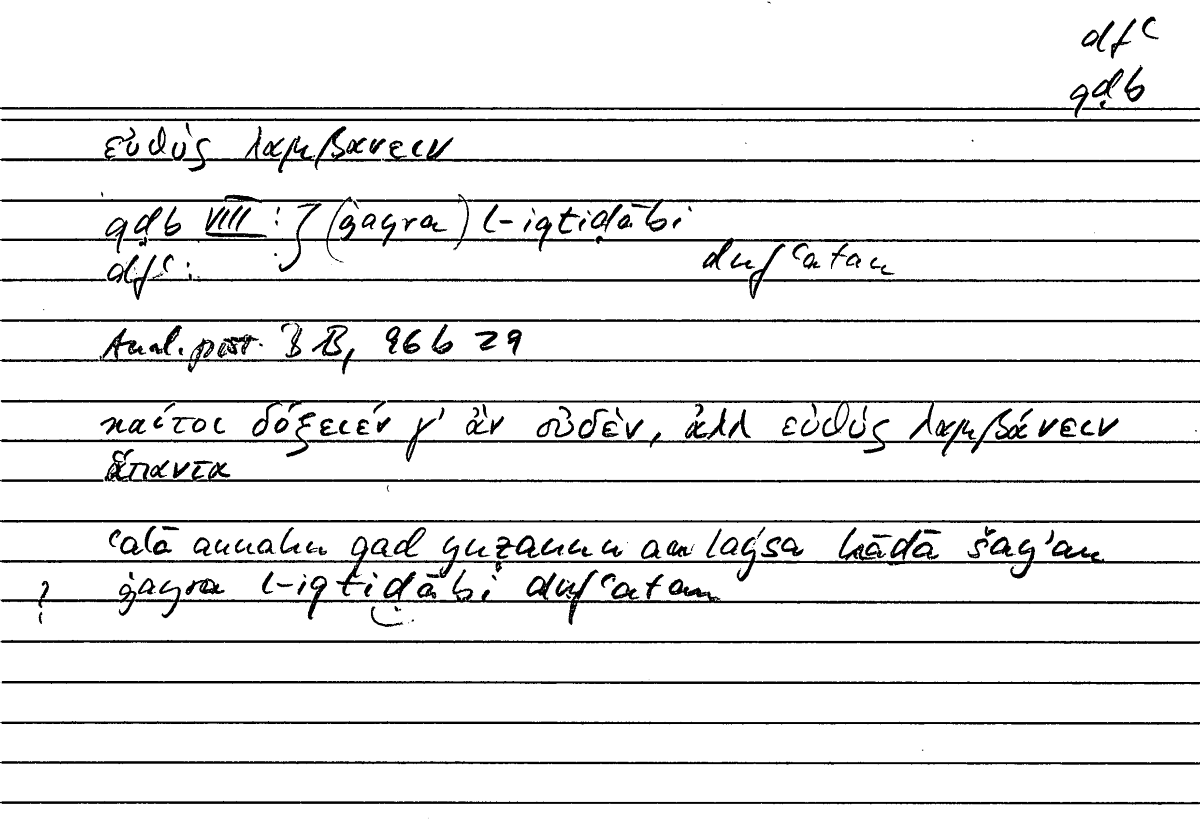 dfʿ
qḍb
εὐθύς λαμβανειν
qḍb VIII : } (ġayra) l-iqtiḍābi
dfʿ : dufʿatan
Anal. post. B 13, 96 b 29
καίτοι δόξειέν γ' ἂν οὐδὲν, ἀλλ εὐθύς λαμβάνειν
ἅπαντα
ʿalā annahu qad yuẓannu an laysa hāḏā šay'an
? ġayra l-iqtiḍābi dufʿatan